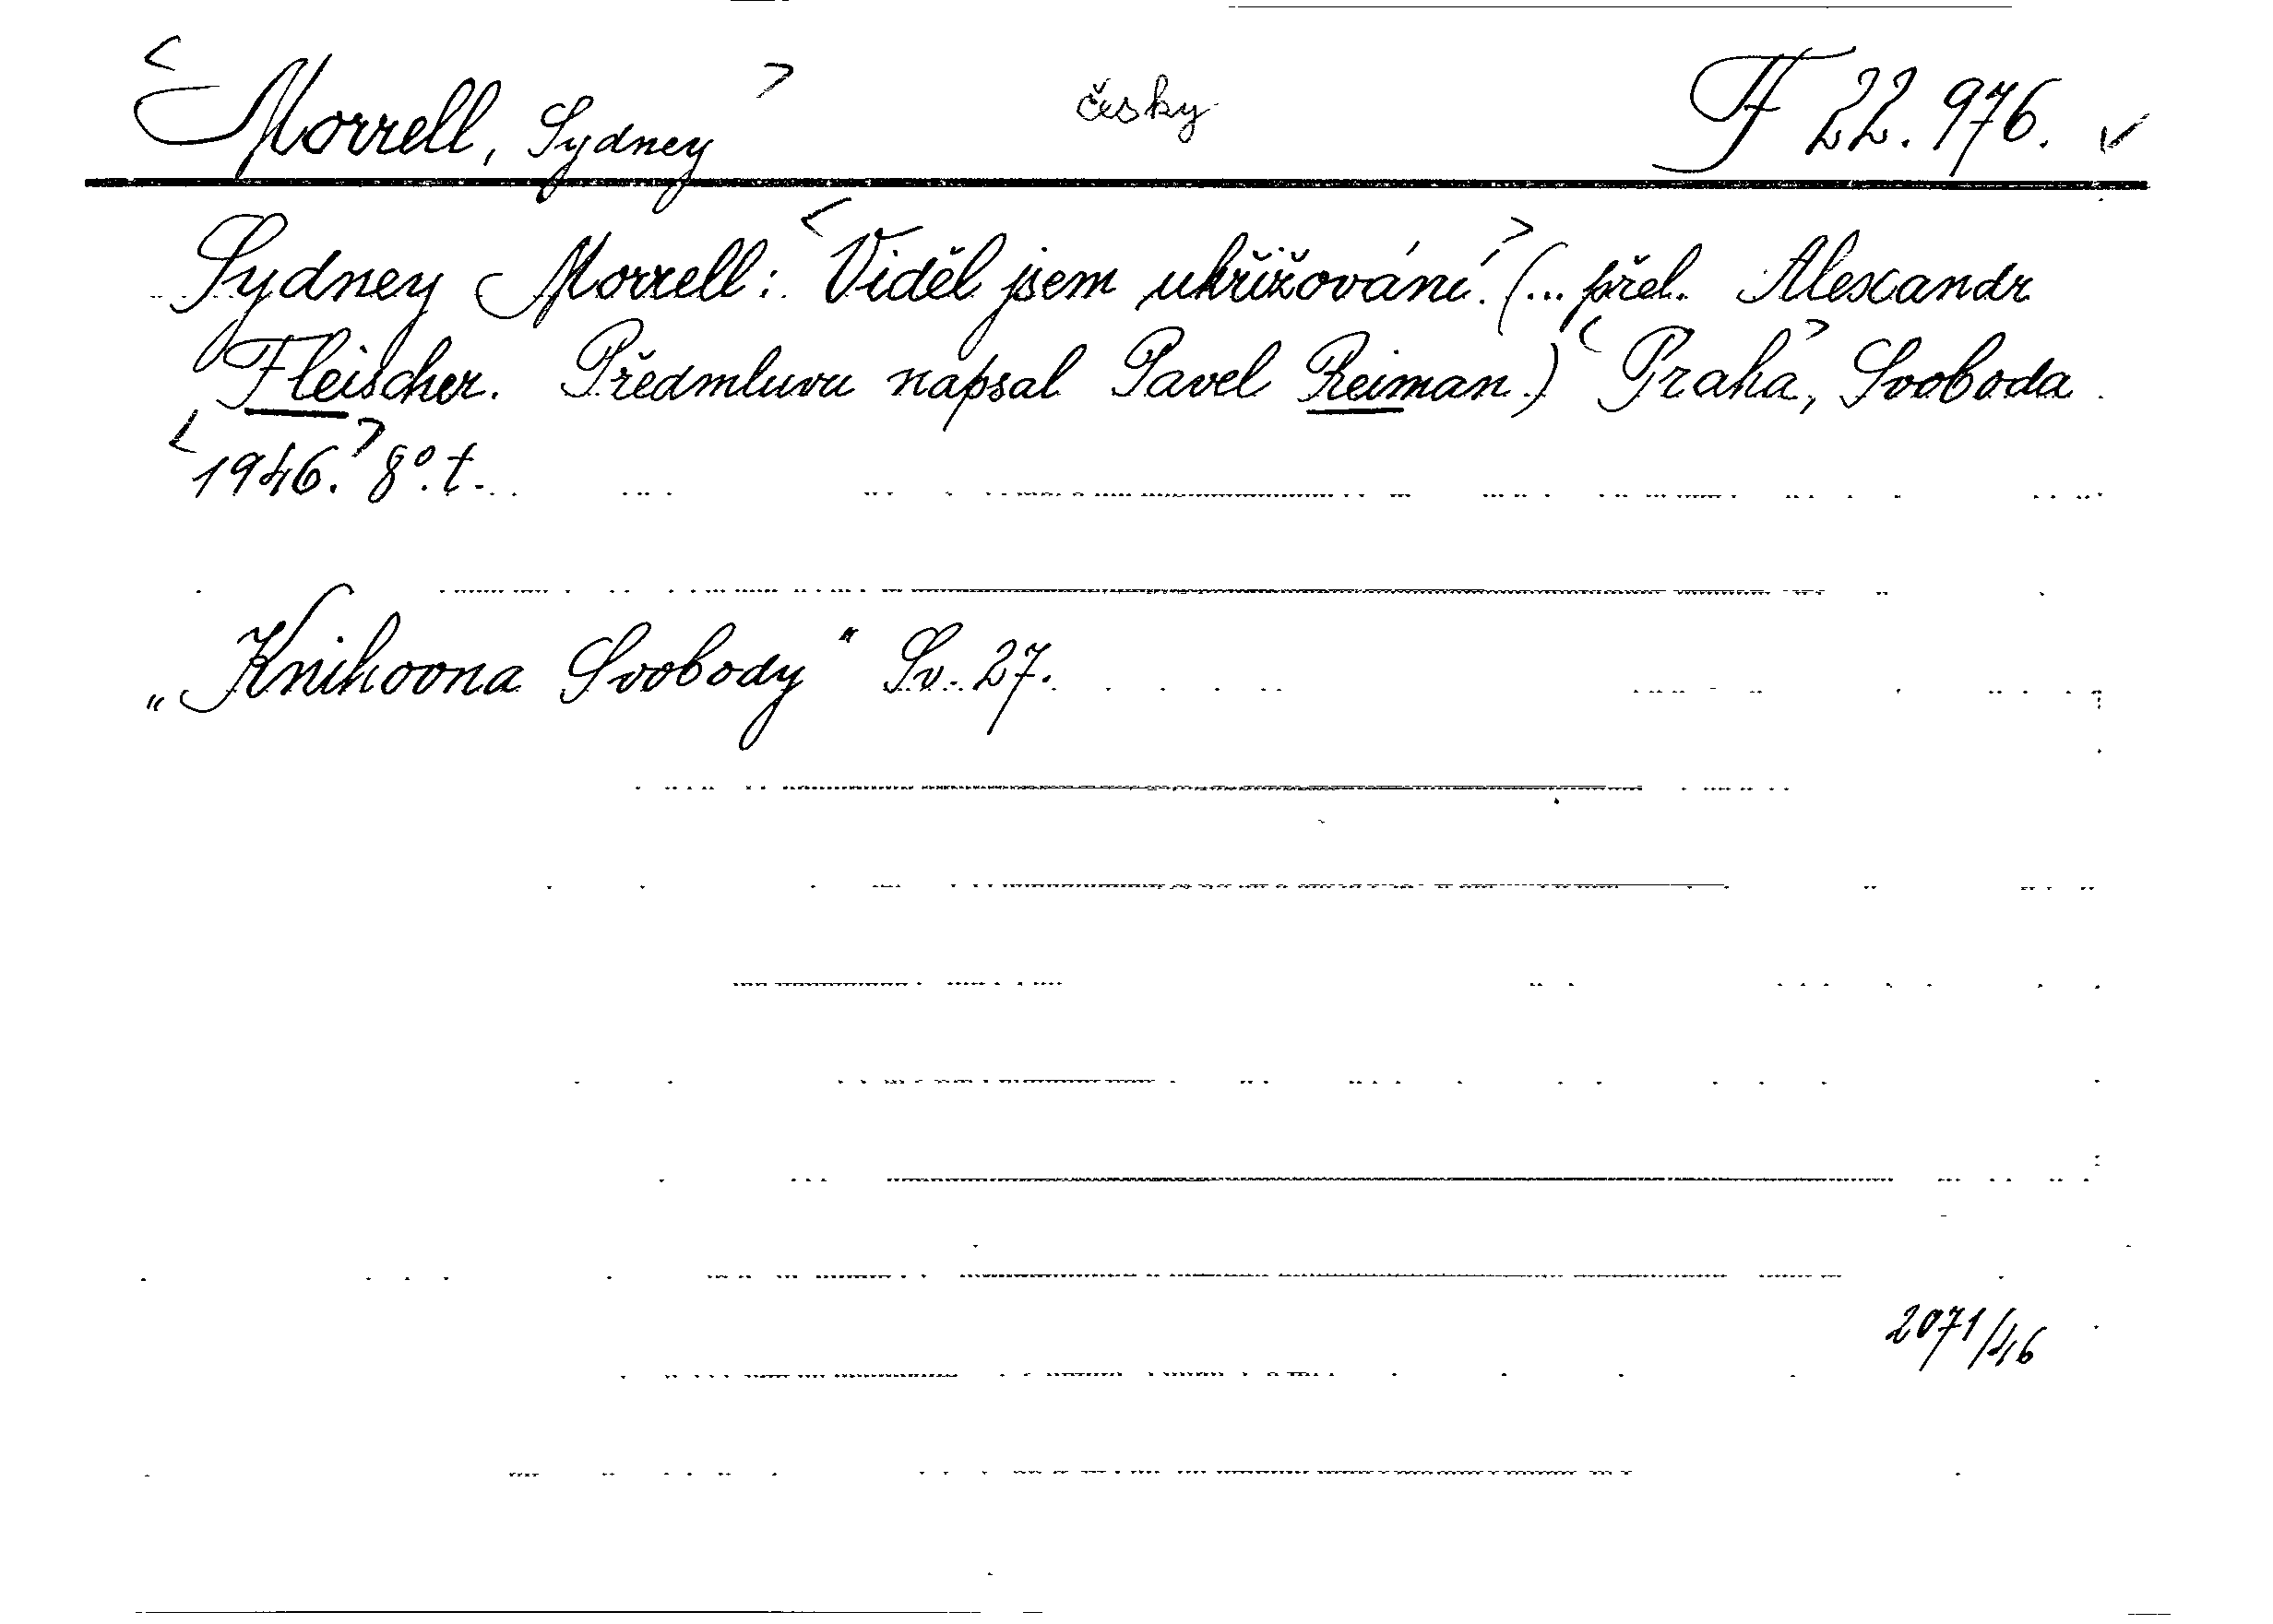 <Morrell, Sydney> česky F 22.976. ✓
Sydney Morrell: <Viděl jsem ukřižování.> (... přel. Alexandr
Fleischer. Předmluvu napsal Pavel Reiman.) <Praha>, Svoboda
<1946.> 8°. t.
„Knihovna Svobody" Sv. 27.
2071/46